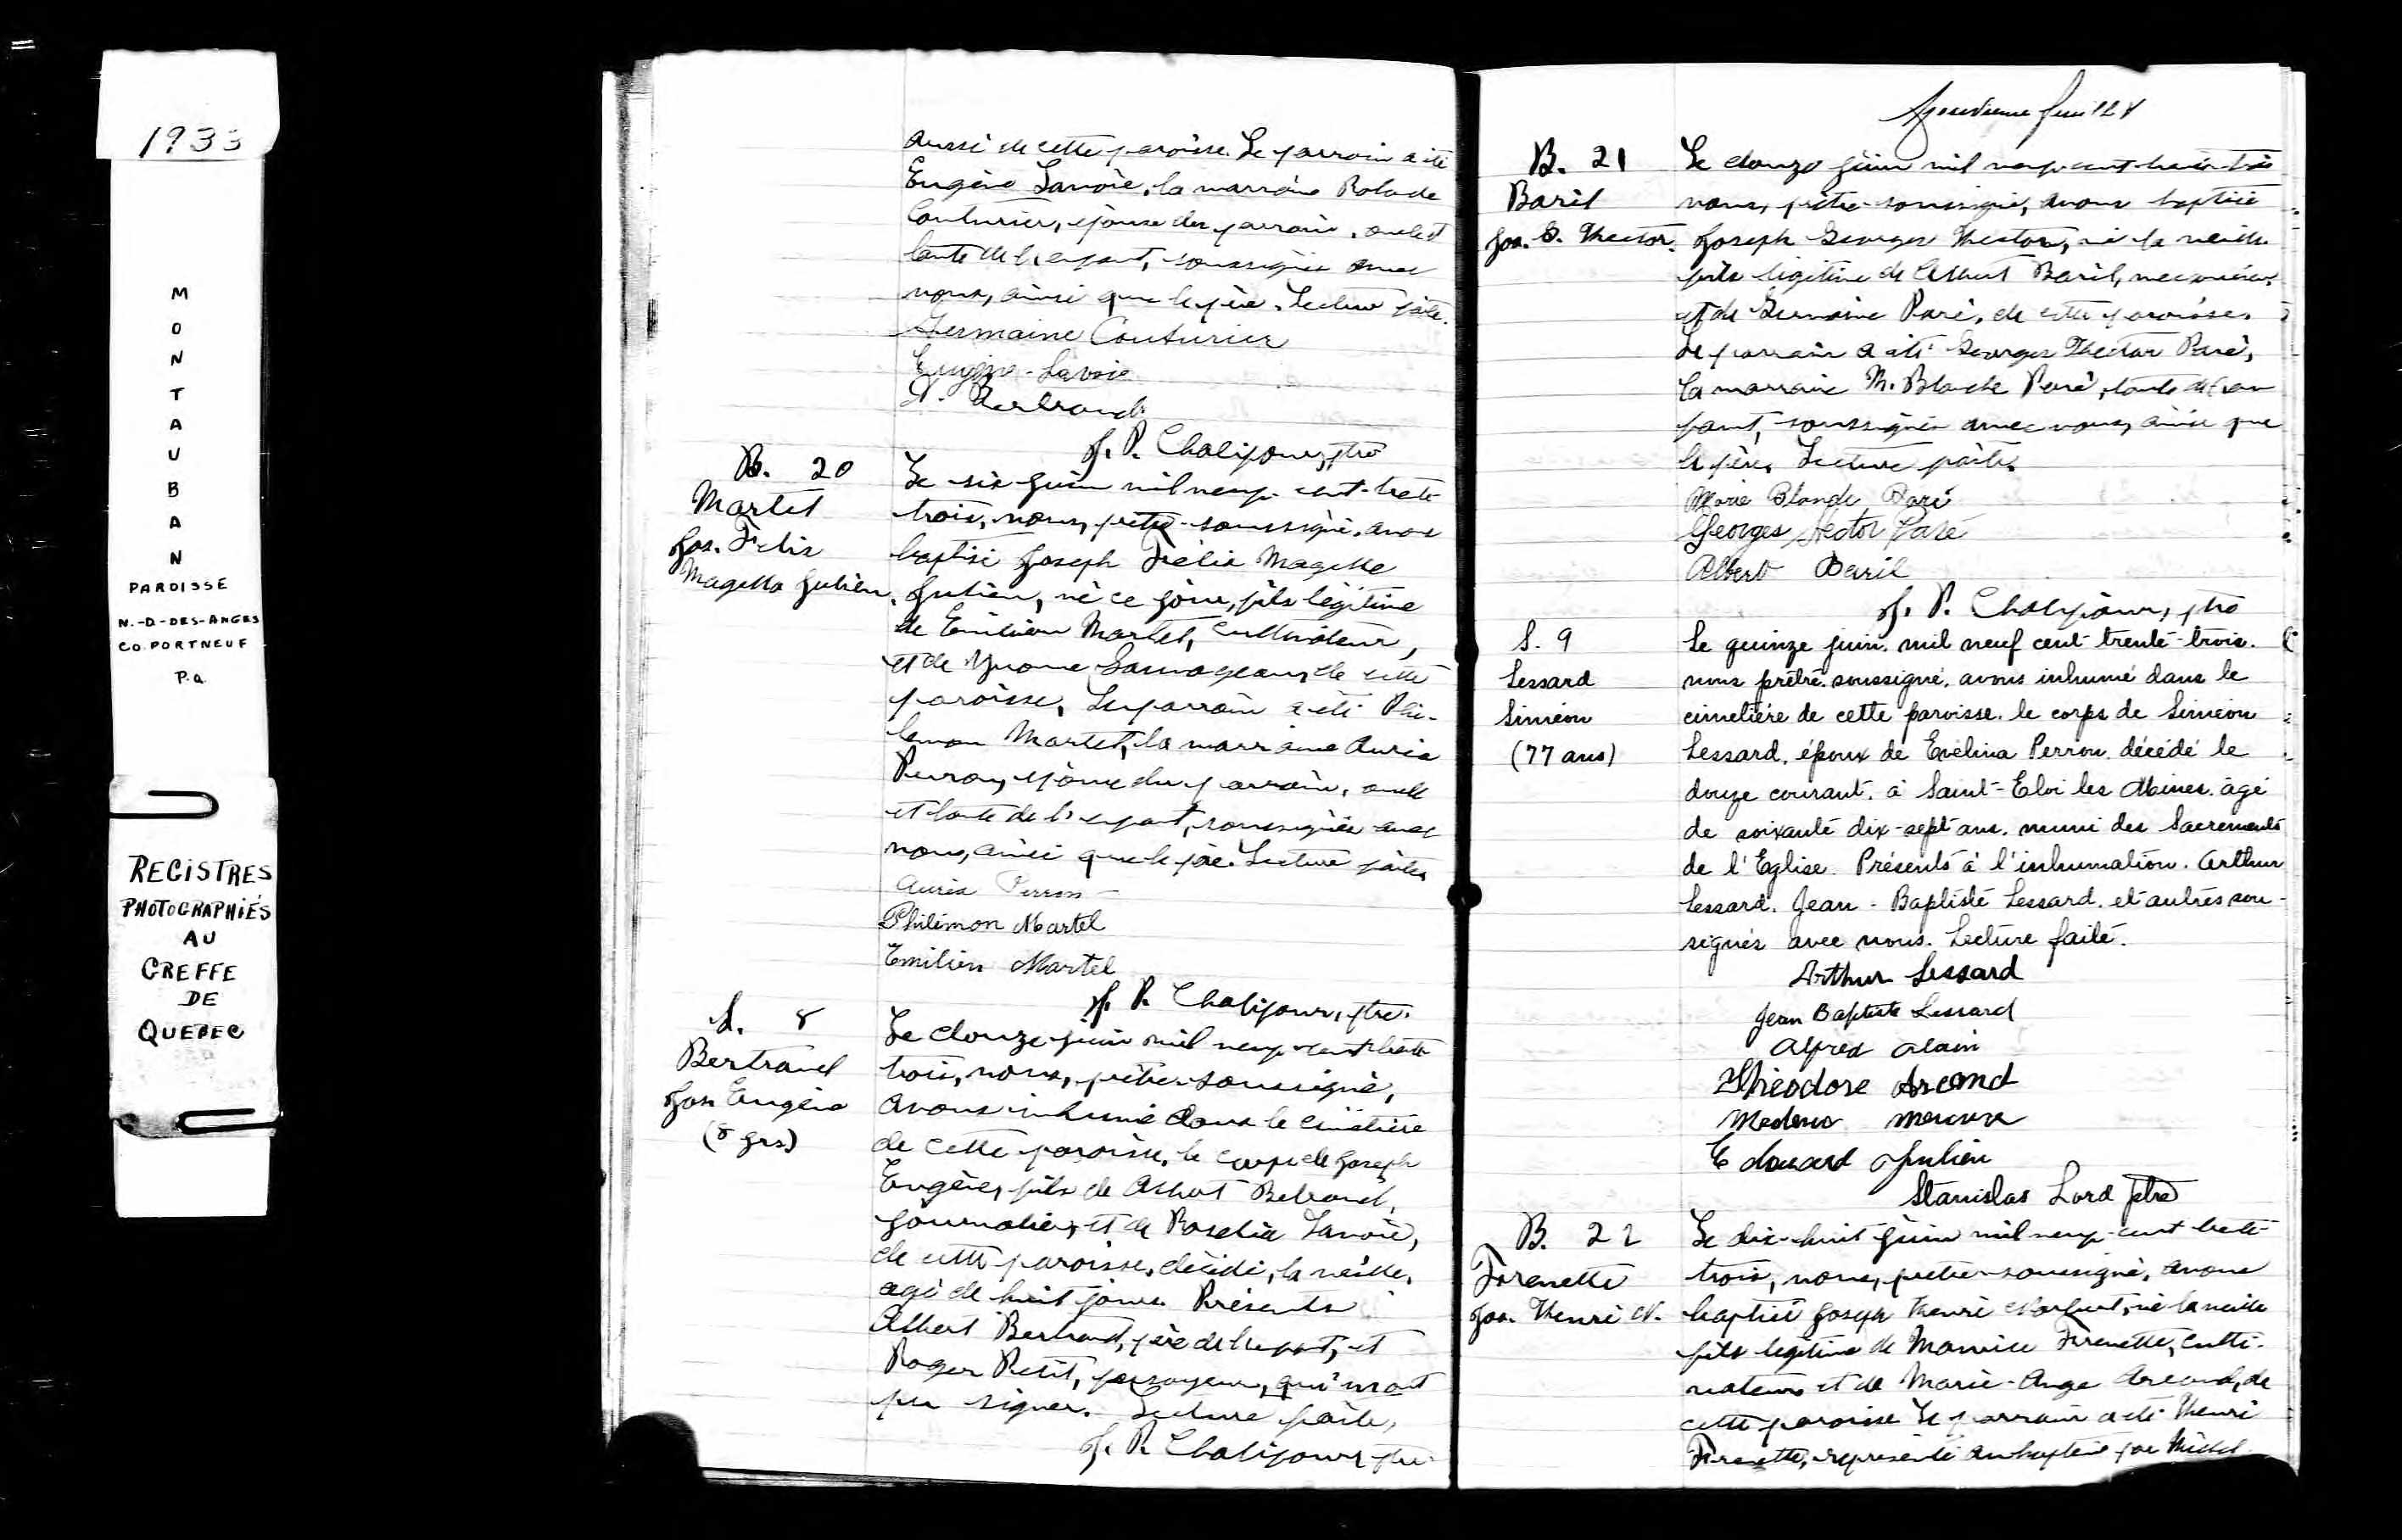 1933
MONTAUBAN
PAROISSE
N.-D-DES-ANGES
CO. PORTNEUF
P.Q.
REGISTRES
PHOTOGRAPHIÉS
AU
GREFFE
DE
QUEBEC
aussi de cette paroisse. Le parrain a été
Eugène Lavoie, la marraine
Couturier, épouse du parrain, oncle et
tante de l'enfant, soussignés avec
nous, ainsi que le père. Lecture faite.
Germaine Couturier
Eugène Lavoie
A. Bertrand
J. P. Chalifour, ptre
B. 20
Martel
Jos. Félix
Magella Julien.
Le six juin mil neuf-cent-trente-
trois, nous, prêtre-soussigné, avons
baptisé Joseph Félix Magella
Julien, né ce jour, fils légitime
de Emilien Martel, cultivateur,
et de Yvonne Sauvageau, de cette
paroisse. Le parrain a été Phi-
lémon Martel, la marraine Auréa
Perron, épouse du parrain, oncle
et tante de l'enfant, soussignés avec
nous, ainsi que le père. Lecture faite.
Auréa Perron
Philémon Martel
Emilien Martel
J. P. Chalifour, ptre.
S. 8
Bertrand
Jos. Eugène
(8 jrs)
Le douze juin mil neuf-cent-trente
trois, nous, prêtre-soussigné,
avons inhumé dans le cimetière
de cette paroisse, le corps de Joseph
Eugène, fils de Albert Bertrand,
journalier, et de Rosélia Lavoie,
de cette paroisse, décédé, la veille,
agé de huit jours. Présents
Albert Bertrand, père de l'enfant, et
Roger Petit, fossoyeur, qui n'ont
pu signer. Lecture faite,
J. P. Chalifour, ptre
feuillet
B. 21
Baril
Jos. G. Hector.
Le douze juin mil neuf-cent-trente-trois
nous, prêtre-soussigné, avons baptisé
Joseph Georges Hector, né la veille
fils légitime de Albert Baril,
et de Germaine Paré, de cette paroisse.
Le parrain a été Georges Hector Paré,
la marraine M. Blanche Paré, tante de l'en-
fant, soussignés avec nous, ainsi que
le père. Lecture faite.
Marie Blanche Paré
Georges Hector Paré
Albert Baril
J. P. Chalifour, ptre
S. 9
Lessard
Siméon
(77 ans)
Le quinze juin. mil neuf cent trente-trois.
nous prêtre soussigné, avons inhumé dans le
cimetière de cette paroisse. le corps de Siméon
Lessard, époux de Evélina Perron, décédé le
douze courant, à Saint-Eloi les Mines. agé
de soixante dix-sept ans. muni des Sacrements
de l'Eglise. Présents à l'inhumation. Arthur
Lessard. Jean-Baptiste Lessard. et autres sous-
signés avec nous. Lecture faite.
Arthur Lessard
Jean Baptiste Lessard
Alfred Alain
Théodore Arcand
Edouard Julien
Stanislas Lord ptre
B. 22
Frenette
Jos. Henri N.
Le dix-huit juin mil neuf-cent trente-
trois, nous, prêtre-soussigné, avons
baptisé Joseph Henri Norbert, né la veille
fils légitime de Maurice Frenette, culti-
vateur et de Marie-Ange Arcand, de
cette paroisse Le parrain a été Henri
Frenette, représenté au baptême par